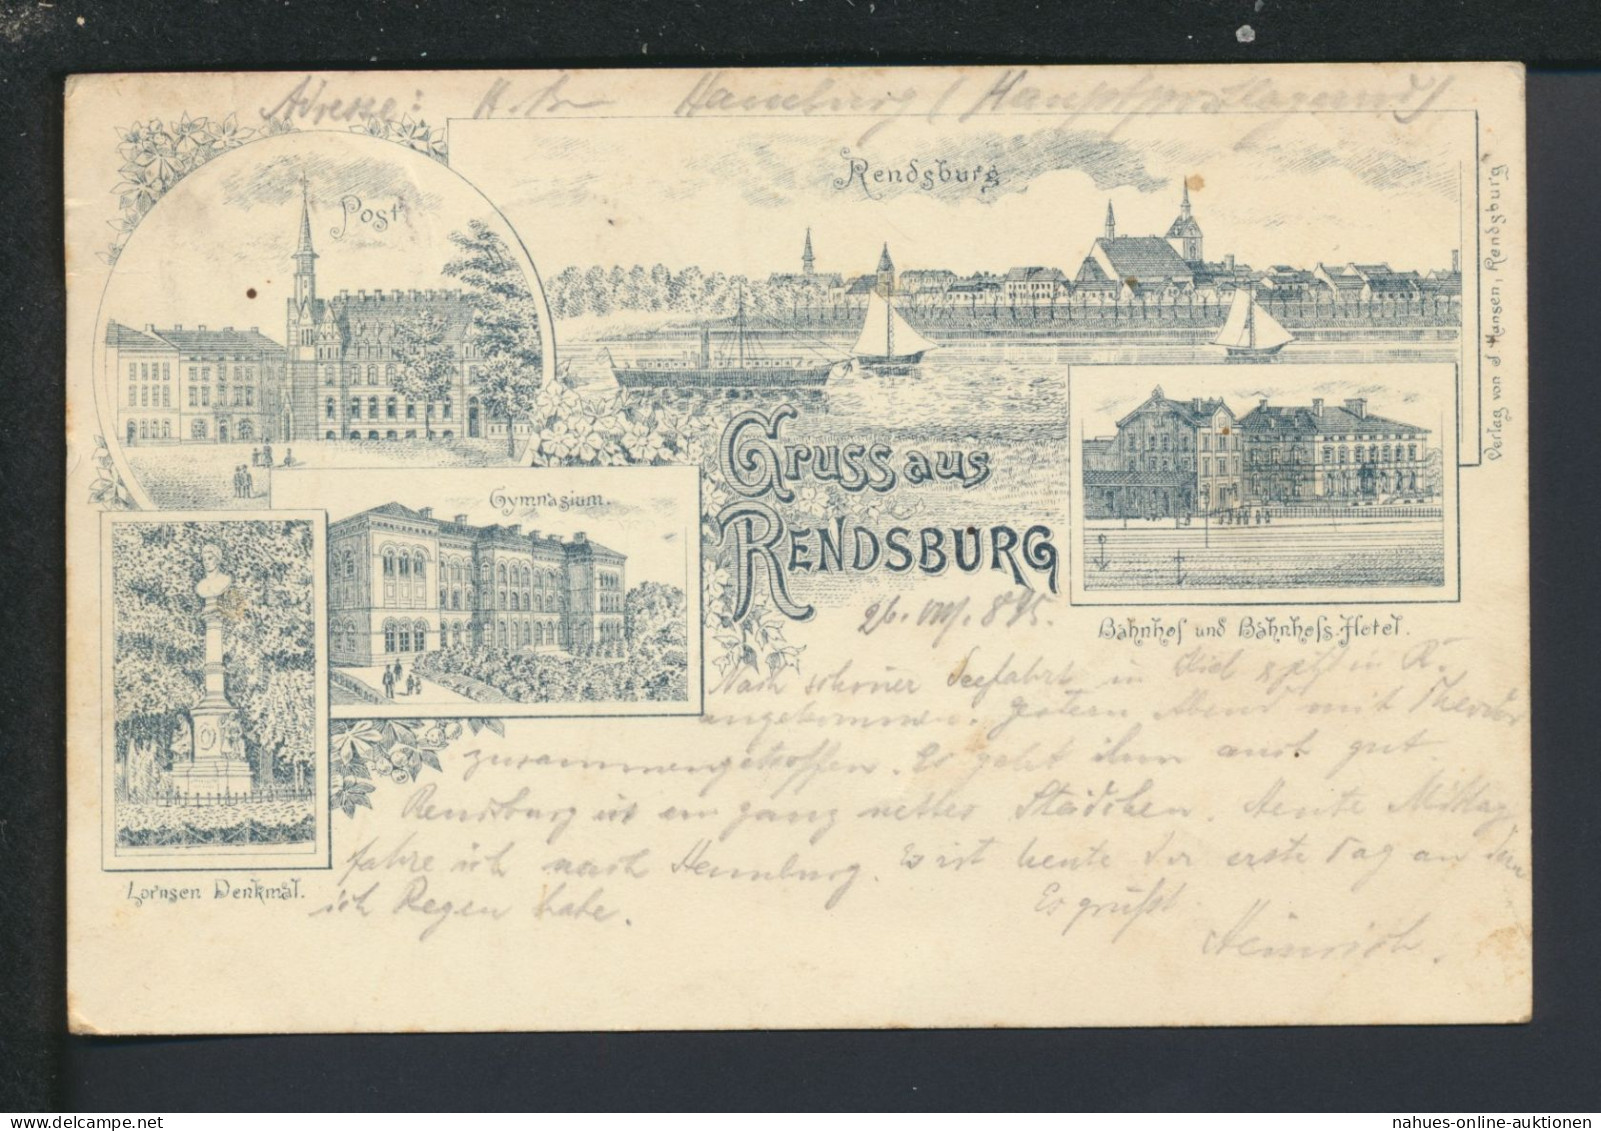 Adresse: H. Hamburg (Hauptpostlagernd)
Rendsburg
Post
Verlag von J Hansen, Rendsburg
Gruss aus
RENDSBURG
Gymnasium.
Bahnhof und Bahnhofs-Hotel.
Lornsen Denkmal.
26. VIII. 895.
Nach schöner Seefahrt in Kiel & jetzt in R.
angekommen. Gestern Abend mit Theodor
zusammengetroffen. Es geht ihm auch gut.
Rendsburg ist ein ganz nettes Städtchen. Heute Mittag
fahre ich nach Hamburg. Es ist heute der erste Tag an dem
ich Regen habe. Es grüßt
Heinrich.
nahues-online-auktionen